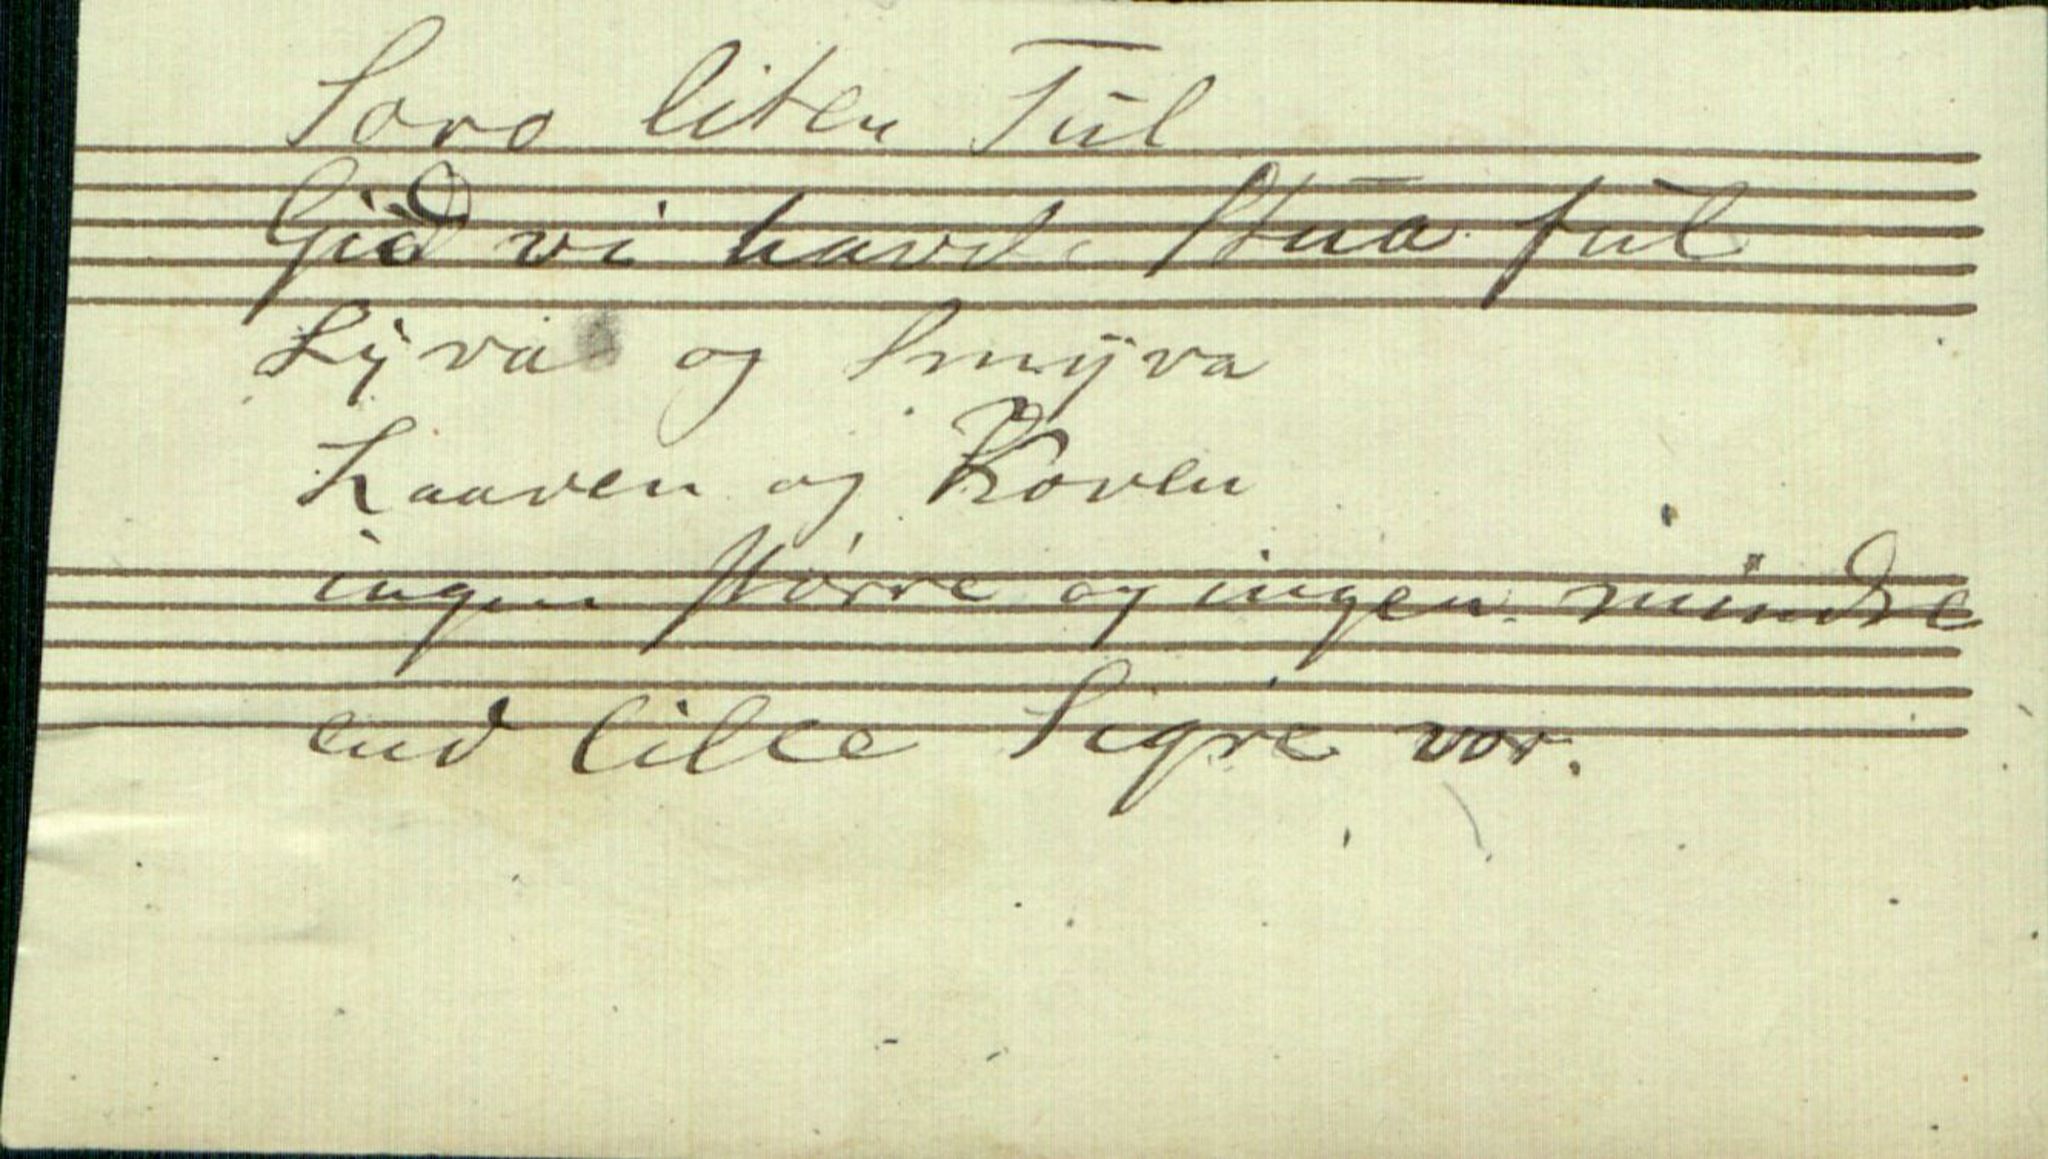 Soro liten Tul
Gid vi havde Stua ful
Lyva og Smyva
Laaven og Koven
ingen större og ingen mindre
end lille Sigre vor.